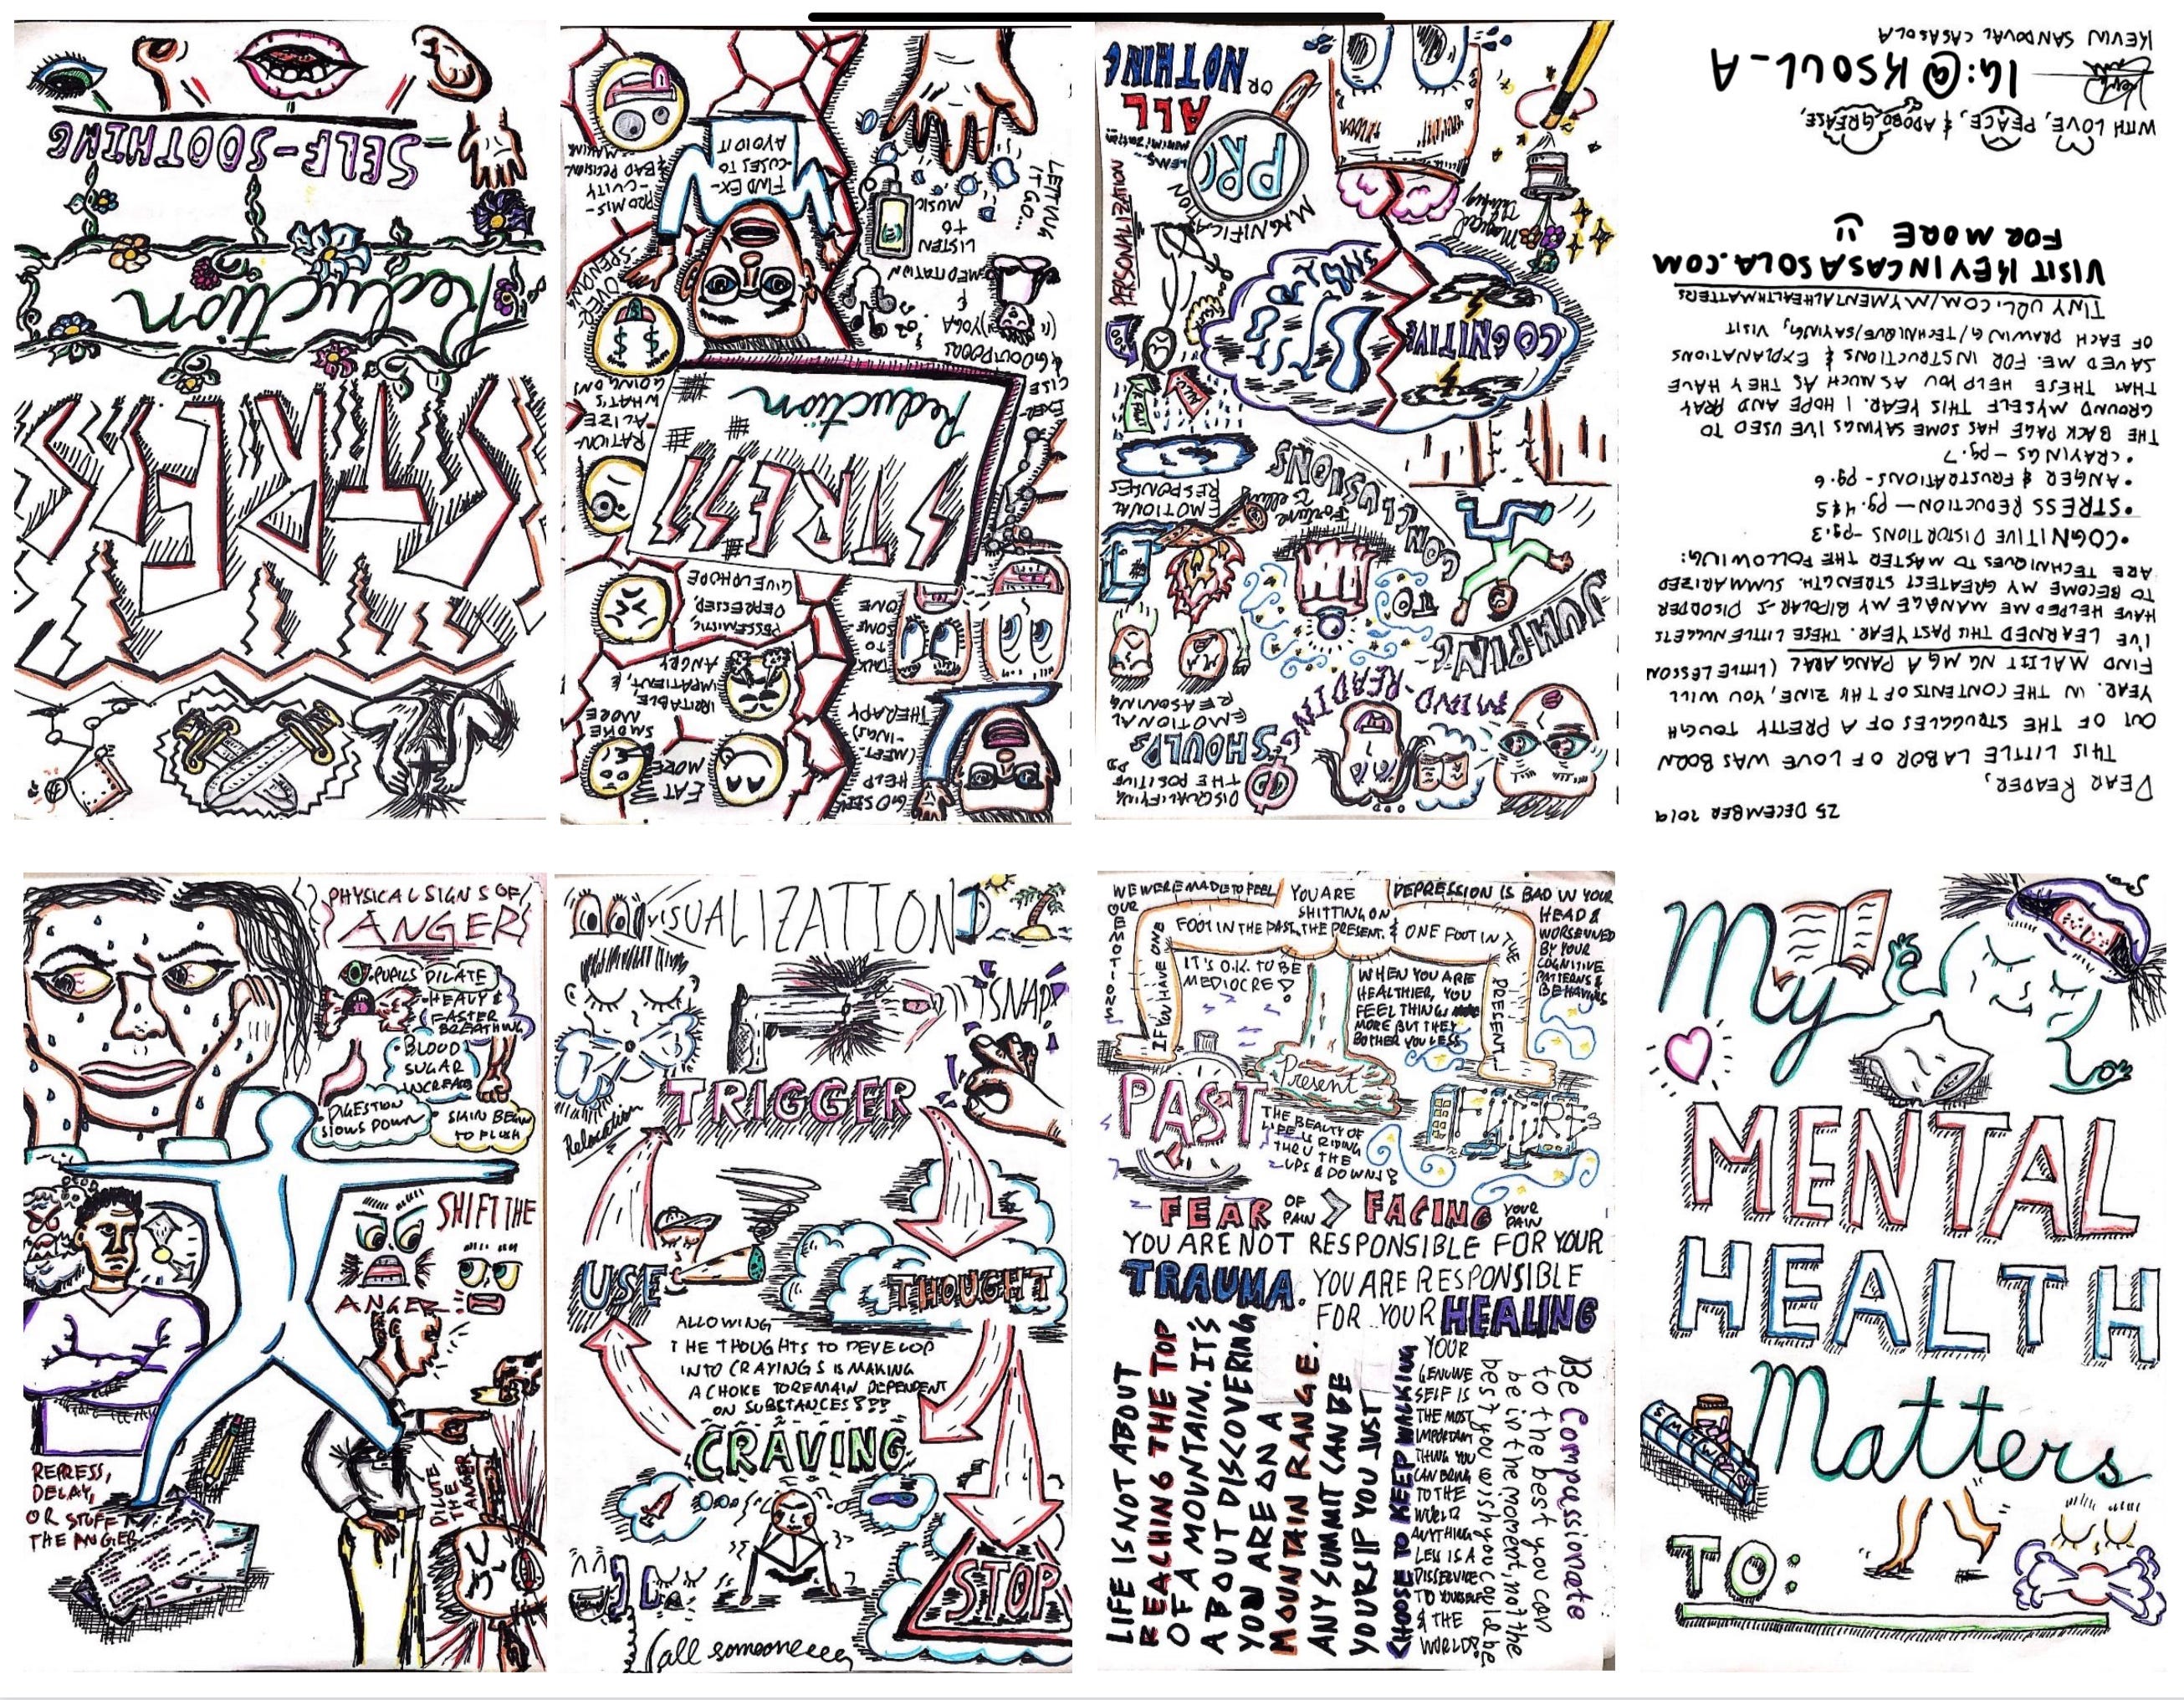 SELF-SOOTHING
STRESS
Reduction
GO SEEK
HELP
(MEET-
-INGS)
THERAPY
EAT
MORE
SMOKE
MORE
IRRITABLE,
IMPATIENT, &
ANGRY
TALK
TO
SOME
ONE
PESSEMISTIC
DEPRESSED,
GIVE UP HOPE
STRESS
Reduction
RATION-
ALIZE
WHAT'S
GOING ON
EXER-
CISE
& GO OUTDOORS
YOGA
&
MEDITATION
OVER-
SPENDING
LISTEN
TO
MUSIC
FIND EX-
CUSES TO
AVOID IT
PROMIS-
CUITY
& BAD DECISION
MAKING
LETTING
IT GO...
DISQUALIFYING
THE POSITIVE
SHOULDS
MIND-READING
EMOTIONAL
REASONING
JUMPING
TO
CONCLUSIONS
Fortune
Telling
EMOTIONAL
RESPONSES
COGNITIVE
PERSONALIZATION
MAGNIFICATION
Magical
Thinking
MINIMIZATION
LENS
PRO
ALL
OR
NOTHING
25 DECEMBER 2019
DEAR READER,
THIS LITTLE LABOR OF LOVE WAS BORN
OUT OF THE STRUGGLES OF A PRETTY TOUGH
YEAR. IN THE CONTENTS OF THIS ZINE, YOU WILL
FIND MALIIT NG MGA PANGARAL (LITTLE LESSON
I'VE LEARNED THIS PAST YEAR. THESE LITTLE NUGGETS
HAVE HELPED ME MANAGE MY BIPOLAR-I DISORDER
TO BECOME MY GREATEST STRENGTH. SUMMARIZED
ARE TECHNIQUES TO MASTER THE FOLLOWING:
•COGNITIVE DISTORTIONS -pg.3
•STRESS REDUCTION — pg. 4&5
•ANGER & FRUSTRATIONS - pg.6
•CRAVINGS - pg.7
THE BACK PAGE HAS SOME SAYINGS I'VE USED TO
GROUND MYSELF THIS YEAR. I HOPE AND PRAY
THAT THESE HELP YOU AS MUCH AS THEY HAVE
SAVED ME. FOR INSTRUCTIONS & EXPLANATIONS
OF EACH DRAWING/TECHNIQUE/SAYING, VISIT
TINYURL.COM/MYMENTALHEALTHMATTERS
VISIT KEVINCASASOLA.COM
FOR MORE
WITH LOVE, PEACE, & ADOBO GREASE,
IG:@KSOUL_A
KEVIN SANDOVAL CASASOLA
PHYSICAL SIGNS OF
ANGER
•PUPILS DILATE
•HEAVY &
FASTER
BREATHING
•BLOOD
SUGAR
INCREASE
•DIGESTION
SLOWS DOWN
•SKIN BEGIN
TO FLUSH
SHIFT THE
ANGER
REPRESS,
DELAY,
OR STUFF
THE ANGER
DILUTE
THE
ANGER
VISUALIZATION
SNAP!
TRIGGER
Relaxation
USE
THOUGHT
ALLOWING
THE THOUGHTS TO DEVELOP
INTO CRAVINGS IS MAKING
A CHOICE TO REMAIN DEPENDENT
ON SUBSTANCES???
CRAVING
STOP
Call someoneeee
WE WERE MADE TO FEEL
OUR EMOTIONS
YOU ARE
SHITTING ON
THE PRESENT.
IF YOU HAVE ONE
FOOT IN THE PAST,
& ONE FOOT IN THE
PRESENT
DEPRESSION IS BAD IN YOUR
HEAD &
WORSENED
BY YOUR
COGNITIVE
PATTERNS &
BEHAVIORS
IT'S O.K. TO BE
MEDIOCRE!
WHEN YOU ARE
HEALTHIER, YOU
FEEL THINGS
MORE BUT THEY
BOTHER YOU LESS
PAST
Present
THE
BEAUTY OF
LIFE IS RIDING
THRU THE
UPS & DOWNS!
FEAR OF PAIN > FACING YOUR PAIN
YOU ARE NOT RESPONSIBLE FOR YOUR
TRAUMA. YOU ARE RESPONSIBLE
FOR YOUR HEALING
LIFE IS NOT ABOUT
REACHING THE TOP
OF A MOUNTAIN. IT'S
ABOUT DISCOVERING
YOU ARE ON A
MOUNTAIN RANGE.
ANY SUMMIT CAN BE
YOURS IF YOU JUST
CHOOSE TO KEEP WALKING
YOUR
GENUINE
SELF IS
THE MOST
IMPORTANT
THING YOU
CAN BRING
TO THE
WORLD
ANYTHING
LESS IS A
DISSERVICE
TO YOURSELF
& THE
WORLD!
Be Compassionate
to the best you can
be in the moment, not the
best you wish you could be
My
MENTAL
HEALTH
Matters
S M T W T F S
TO: